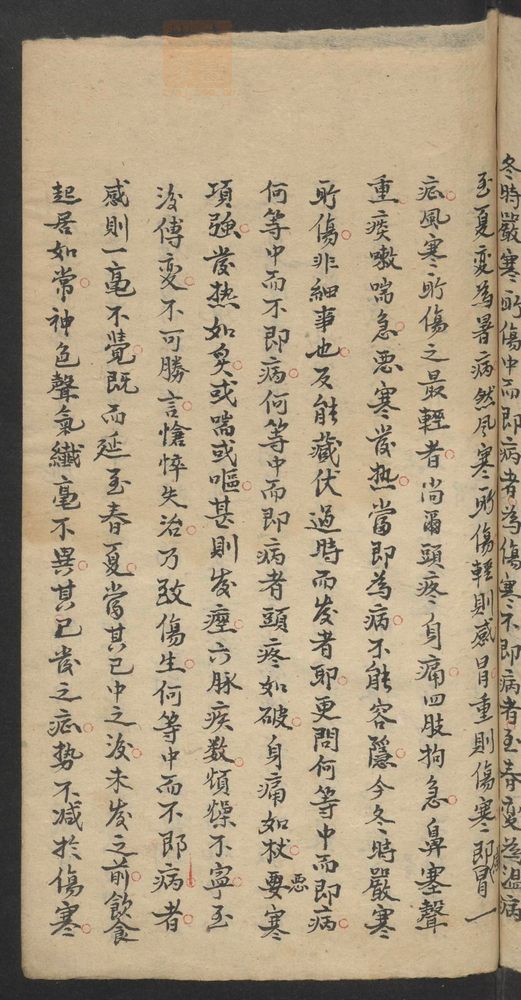 冬時嚴寒所傷中而即病者為傷寒不即病者至春變為溫病
至夏变為暑病然风寒所傷輕則感冒重則傷寒即感冒一
症風寒所傷之最輕者尚爾頭疼身痛四肢拘急鼻塞聲
重痰嗽喘急惡寒發熱當即為病不能容隱今冬時嚴寒
所傷非細事也反能藏伏過時而发者耶更問何等中而即病
何等中而不即病何等中而即病者頭疼如破身痛如杖惡寒
項強發热如炙或喘或嘔甚則发痙六脉疾数煩燥不寧至
後傳变不可勝言愴悴失治乃致傷生何等中而不即病者
感則一毫不覺既而延至春夏當其已中之後未发之前飲食
起居如常神色聲氣纖毫不異其已發之症势不減於傷寒